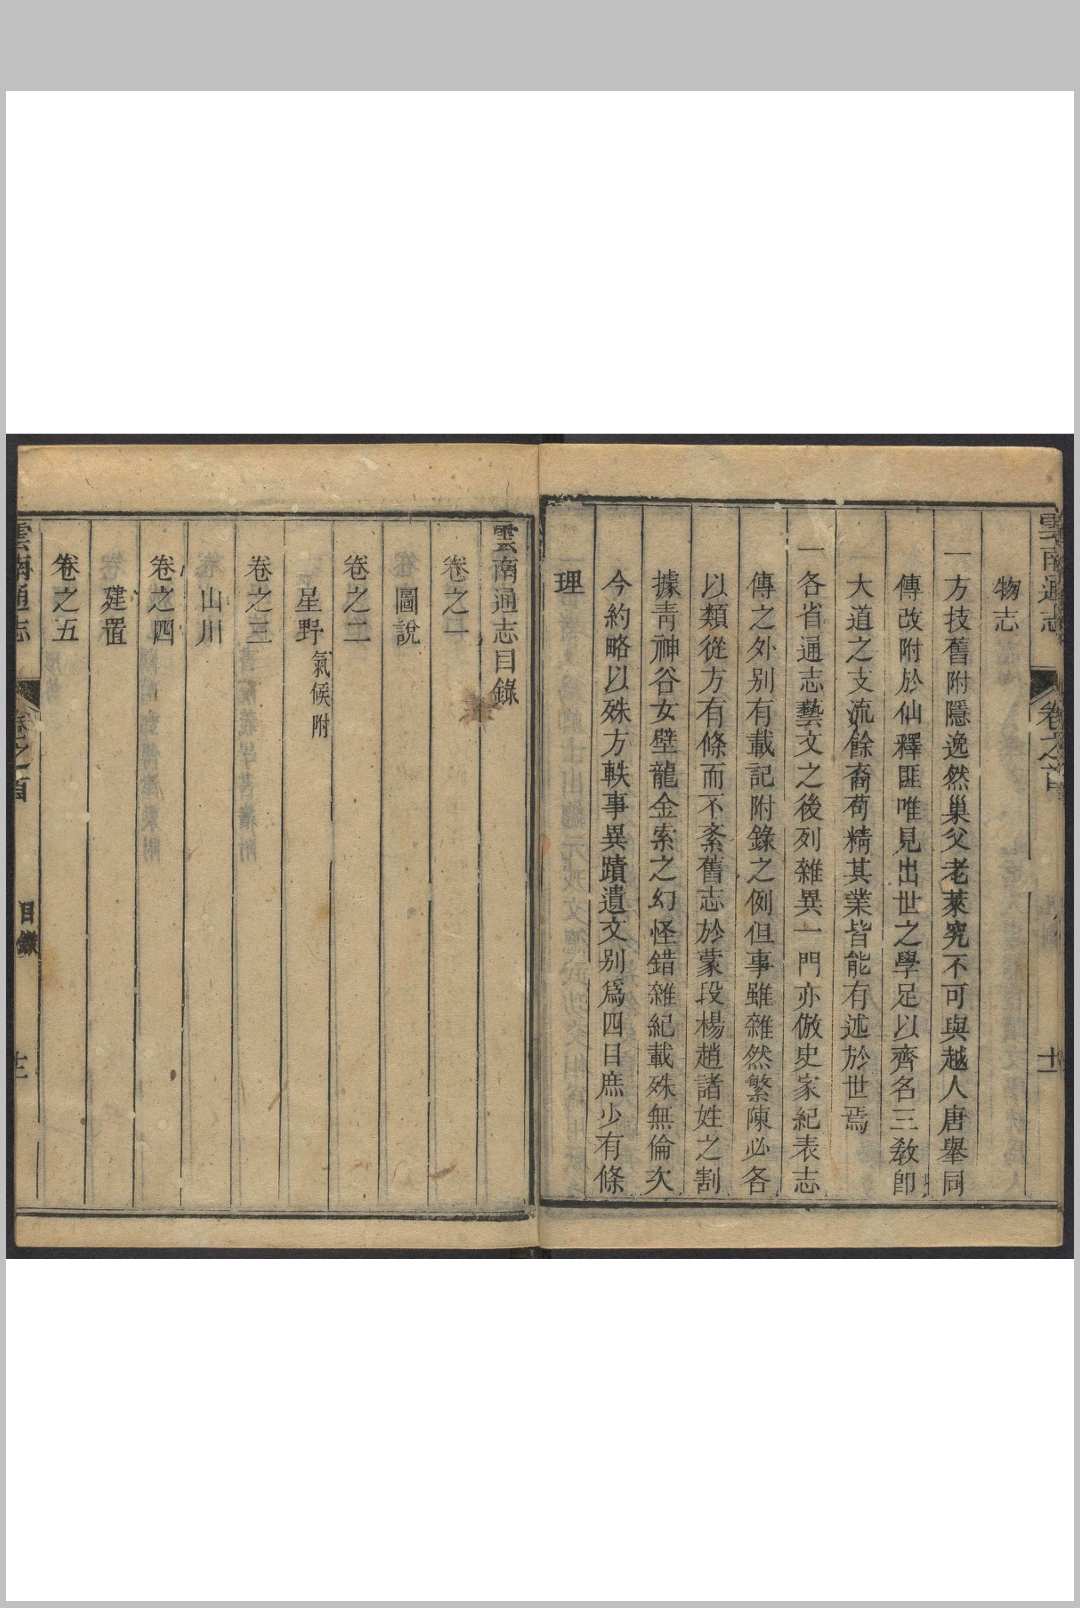 雲南通志
卷之首
十一
物志
一方技舊附隱逸然巢父老萊究不可與越人唐舉同
傳改附於仙釋匪唯見出世之學足以齊名三敎卽
大道之支流餘裔苟精其業皆能有述於世焉
一各省通志藝文之後列雜異一門亦倣史家紀表志
傳之外别有載記附錄之例但事雖雜然繁陳必各
以類從方有條而不紊舊志於蒙段楊趙諸姓之割
據靑神谷女壁龍金索之幻怪錯雜紀載殊無倫次
今約略以殊方軼事異蹟遺文别爲四目庶少有條
理
雲南通志目錄
卷之一
圖說
卷之二
星野 氣候附
卷之三
山川
卷之四
建置
卷之五
雲南通志
卷之首
目錄